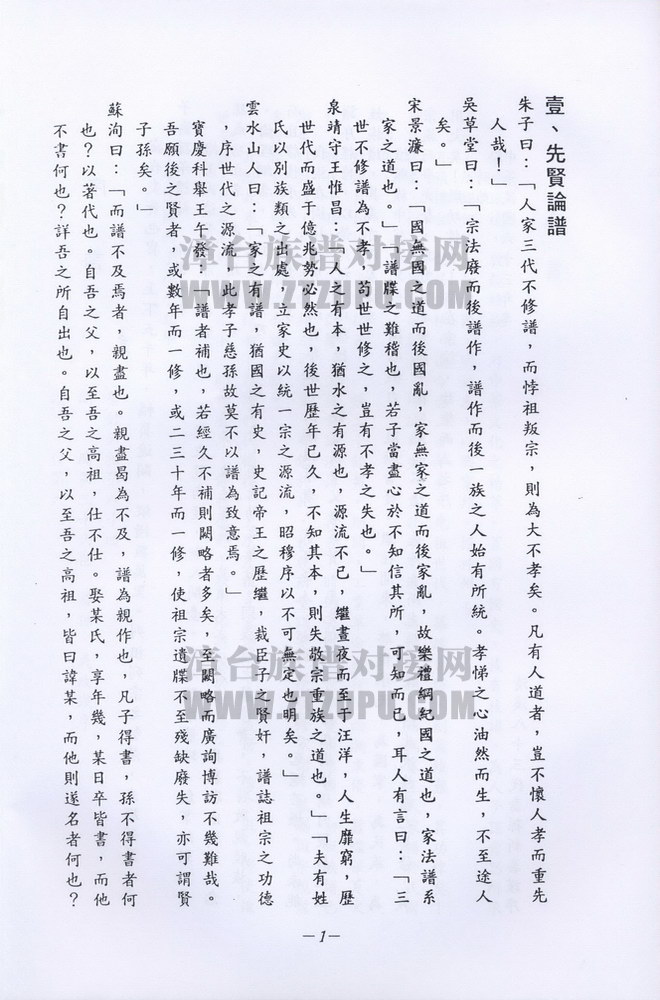 壹、先賢論譜
朱子曰：「人家三代不修譜，而悖祖叛宗，則為大不孝矣。凡有人道者，豈不懷人孝而重先
人哉！」
吳草堂曰：「宗法廢而後譜作，譜作而後一族之人始有所統。孝悌之心油然而生，不至途人
矣。」
宋景濂曰：「國無國之道而後國亂，家無家之道而後家亂，故樂禮綱紀國之道也，家法譜系
家之道也。」「譜牒之難稽也，若子當盡心於不知信其所，可知而已，耳人有言曰：「三
世不修譜為不孝，苟世世修之，豈有不孝之失也。」
泉靖守王惟昌：「人之有本，猶水之有源也，源流不已，繼晝夜而至于汪洋，人生靡窮，歷
世代而盛于億兆勢必然也，後世歷年已久，不知其本，則失敬宗重族之道也。」「夫有姓
氏以別族類之出處，立家史以統一宗之源流，昭穆序以不可無定也明矣。」
雲水山人曰：「家之有譜，猶國之有史，史記帝王之歷繼，裁臣子之賢奸，譜誌祖宗之功德
，序世代之源流，此孝子慈孫故莫不以譜為致意焉。」
寶慶科舉王午發：「譜者補也，若經久不補則闕略者多矣，至闕略而廣詢博訪不幾難哉。
吾願後之賢者，或數年而一修，或二三十年而一修，使祖宗遺牒不至殘缺廢失，亦可謂賢
子孫矣。」
蘇洵曰：「而譜不及焉者，親盡也。親盡曷為不及，譜為親作也，凡子得書，孫不得書者何
也？以著代也。自吾之父，以至吾之高祖，仕不仕。娶某氏，享年幾，某日卒皆書，而他
不書何也？詳吾之所自出也。自吾之父，以至吾之高祖，皆曰諱某，而他則遂名者何也？
－1－
漳台族谱对接网
WWW.ZTZUPU.COM
漳台族谱对接网
WWW.ZTZUPU.COM